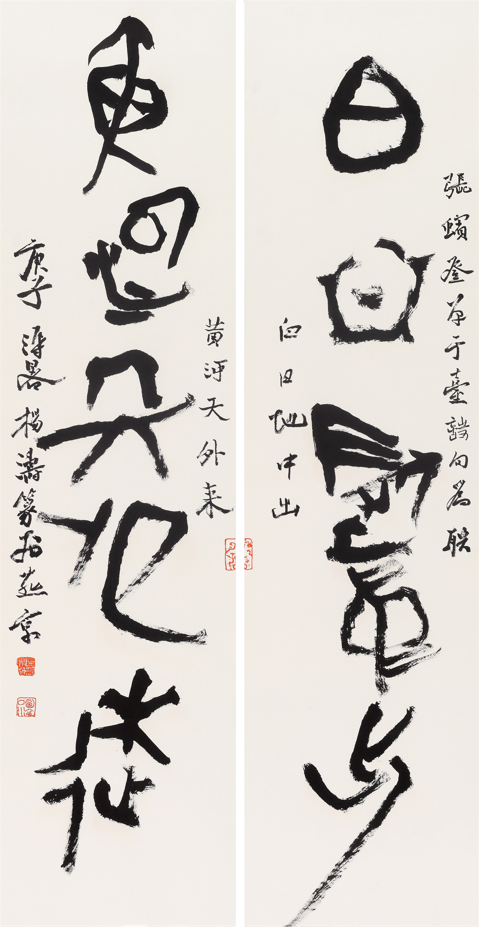 張蠙登單于臺詩句為聯
白日地中出
白日地中出
黃河天外来
黃河天外來
庚子溽暑楊濤篆於燕京